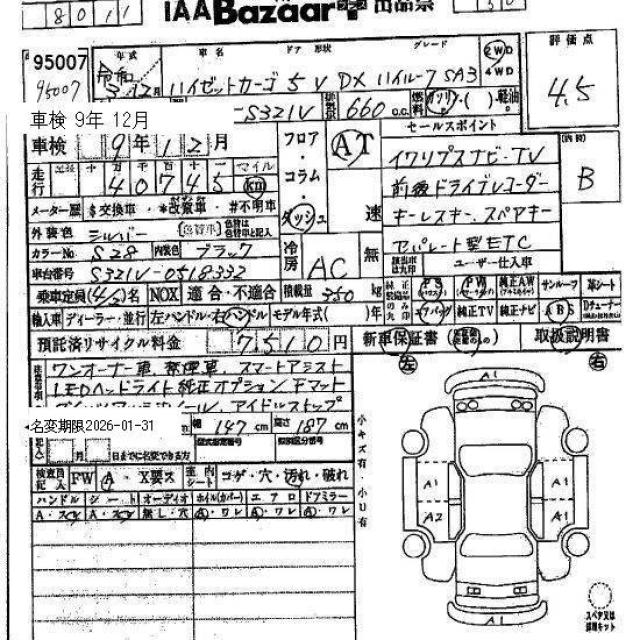 8011
IAA Bazaar 出品票
95007
95007
年式
車名
ドア 形状
グレード
評価点
令和 3.12月
ハイゼットカーゴ 5V DX ハイルーフ SAⅢ
2WD
4WD
4.5
S321V
660 c.c.
燃料 ガソリン・( )・軽油
車検 9年 12月
車検 9年12月
フロア・コラム・ダッシュ
AT
速
セールスポイント
イクリプスナビ・TV
前後ドライブレコーダー
キーレスキー、スペアキー
セパレート型ETC
内装
B
走行 40745 km
マイル
メーター歴 $交換車・*改竄車・#不明車
外装色 シルバー
色替車
カラーNo. S28 内装色 ブラック
冷房 AC 無
ユーザー仕入車
車台番号 S321V-0518332
乗車定員(4/2)名 NOX 適合・不適合 積載量 350 kg
PS
PW
純正AW
サンルーフ
革シート
輸入車 ディーラー・並行 左ハンドル・右ハンドル モデル年式( )年
エアバッグ
純正TV
純正ナビ
ABS
Dチューナー
預託済リサイクル料金 7510円
新車保証書
取扱説明書
ワンオーナー車、禁煙車、スマートアシスト
LEDヘッドライト 純正オプションフロアマット
アイドルストップ
名変期限2026-01-31
幅 147cm 高さ 187cm
型式指定番号
類別区分番号
記入
月
日までに名変できる方
左
右
小キズ有・小U有
検査員記入 FW A・X要ス 室内シート コゲ・穴・汚れ・破れ
ハンドル シート オーディオ ホイル(カバー) エアロ ドアミラー
A・スレ A・スレ 無し・穴 A・ワレ A・ワレ A・ワレ
A1
A1
A2
A1
A1
A1
スペア又は